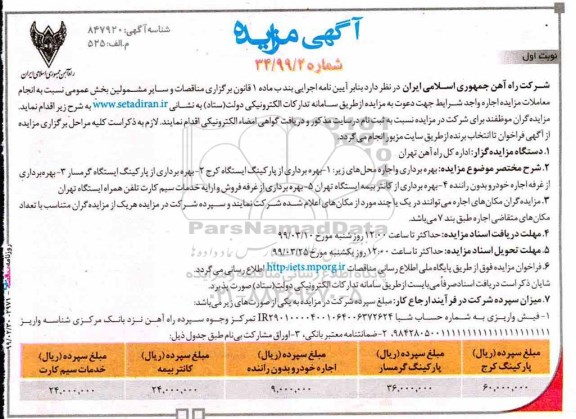 آگهی مزایده
شماره ۳۴/۹۹/۲
شناسه آگهی: ۸۴۷۹۲۰
م.الف: ۵۲۵
راه‌آهن جمهوری اسلامی ایران
نوبت اول
شرکت راه آهن جمهوری اسلامی ایران در نظر دارد بنابر آیین نامه اجرایی بند ب ماده ۱ قانون برگزاری مناقصات و سایر مشمولین بخش عمومی نسبت به انجام
معاملات مزایده اجاره واجد شرایط جهت دعوت به مزایده از طریق سامانه تدارکات الکترونیکی دولت(ستاد) به نشانی www.setadiran.ir به شرح زیر اقدام نماید.
مزایده گران موظفند برای شرکت در مزایده نسبت به ثبت نام در سایت مذکور و دریافت گواهی امضاء الکترونیکی اقدام نمایند. لازم به ذکر است کلیه مراحل برگزاری مزایده
از آگهی فراخوان تا انتخاب برنده از طریق سایت مزبور انجام می گردد.
۱. دستگاه مزایده گزار: اداره کل راه آهن تهران
۲. شرح مختصر موضوع مزایده: بهره برداری و اجاره محل های زیر: ۱-بهره برداری از پارکینگ ایستگاه کرج ۲-بهره برداری از پارکینگ ایستگاه گرمسار ۳-بهره برداری
از غرفه اجاره خودرو بدون راننده ۴-بهره برداری از کانتر بیمه ایستگاه تهران ۵-بهره برداری از غرفه فروش و ارایه خدمات سیم کارت تلفن همراه ایستگاه تهران
۳. مزایده گران مکان های اجاره می توانند در یک یا چند مورد از مکان های اعلام شده شرکت نمایند و سپرده شرکت در مزایده هر یک از مزایده گران متناسب با تعداد
مکان های متقاضی اجاره طبق بند ۷ می باشد.
۴. مهلت دریافت اسناد مزایده: حداکثر تا ساعت ۱۲:۰۰ روز شنبه مورخ ۹۹/۰۳/۱۰
۵. مهلت تحویل اسناد مزایده: حداکثر تا ساعت ۱۲:۰۰ روز یکشنبه مورخ ۹۹/۰۳/۲۵
۶. فراخوان مزایده فوق از طریق پایگاه ملی اطلاع رسانی مناقصات http://iets.mporg.ir اطلاع رسانی می گردد.
شایان ذکر است دریافت اسناد صرفاً می بایست از طریق سامانه تدارکات الکترونیکی دولت(ستاد) صورت پذیرد.
۷. میزان سپرده شرکت در فرآیند ارجاع کار: مبلغ سپرده شرکت در مزایده به یکی از صورت های زیر می باشد:
۱- فیش واریزی به شماره حساب شبا IR۲۹۰۱۰۰۰۰۴۰۰۱۰۶۴۰۰۶۳۷۲۶۲۴ تمرکز وجوه سپرده راه آهن نزد بانک مرکزی شناسه واریز
۲- ضمانتنامه معتبر بانکی، ۳- اوراق مشارکت بی نام طبق جدول ذیل:
مبلغ سپرده (ریال) پارکینگ کرج | مبلغ سپرده (ریال) پارکینگ گرمسار | مبلغ سپرده (ریال) اجاره خودرو بدون راننده | مبلغ سپرده (ریال) کانتر بیمه | مبلغ سپرده (ریال) خدمات سیم کارت
۶۰,۰۰۰,۰۰۰ | ۳۶,۰۰۰,۰۰۰ | ۹,۰۰۰,۰۰۰ | ۲۴,۰۰۰,۰۰۰ | ۲۴,۰۰۰,۰۰۰
ParsNamadData